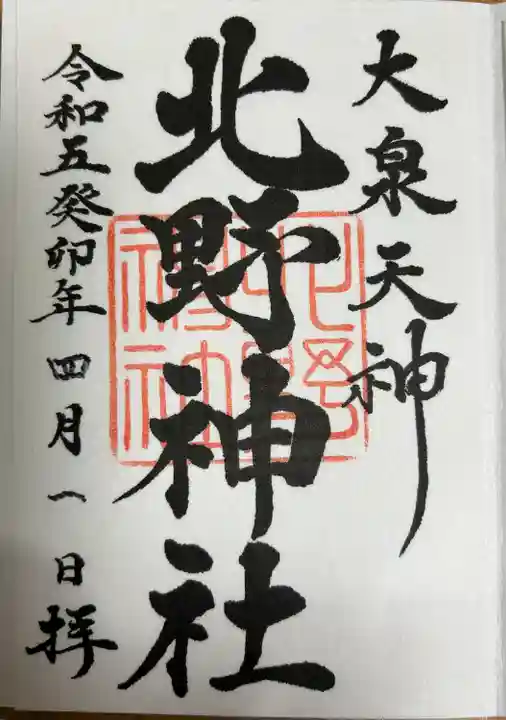 大泉天神
北野神社
令和五癸卯年四月一日拝
北野神社